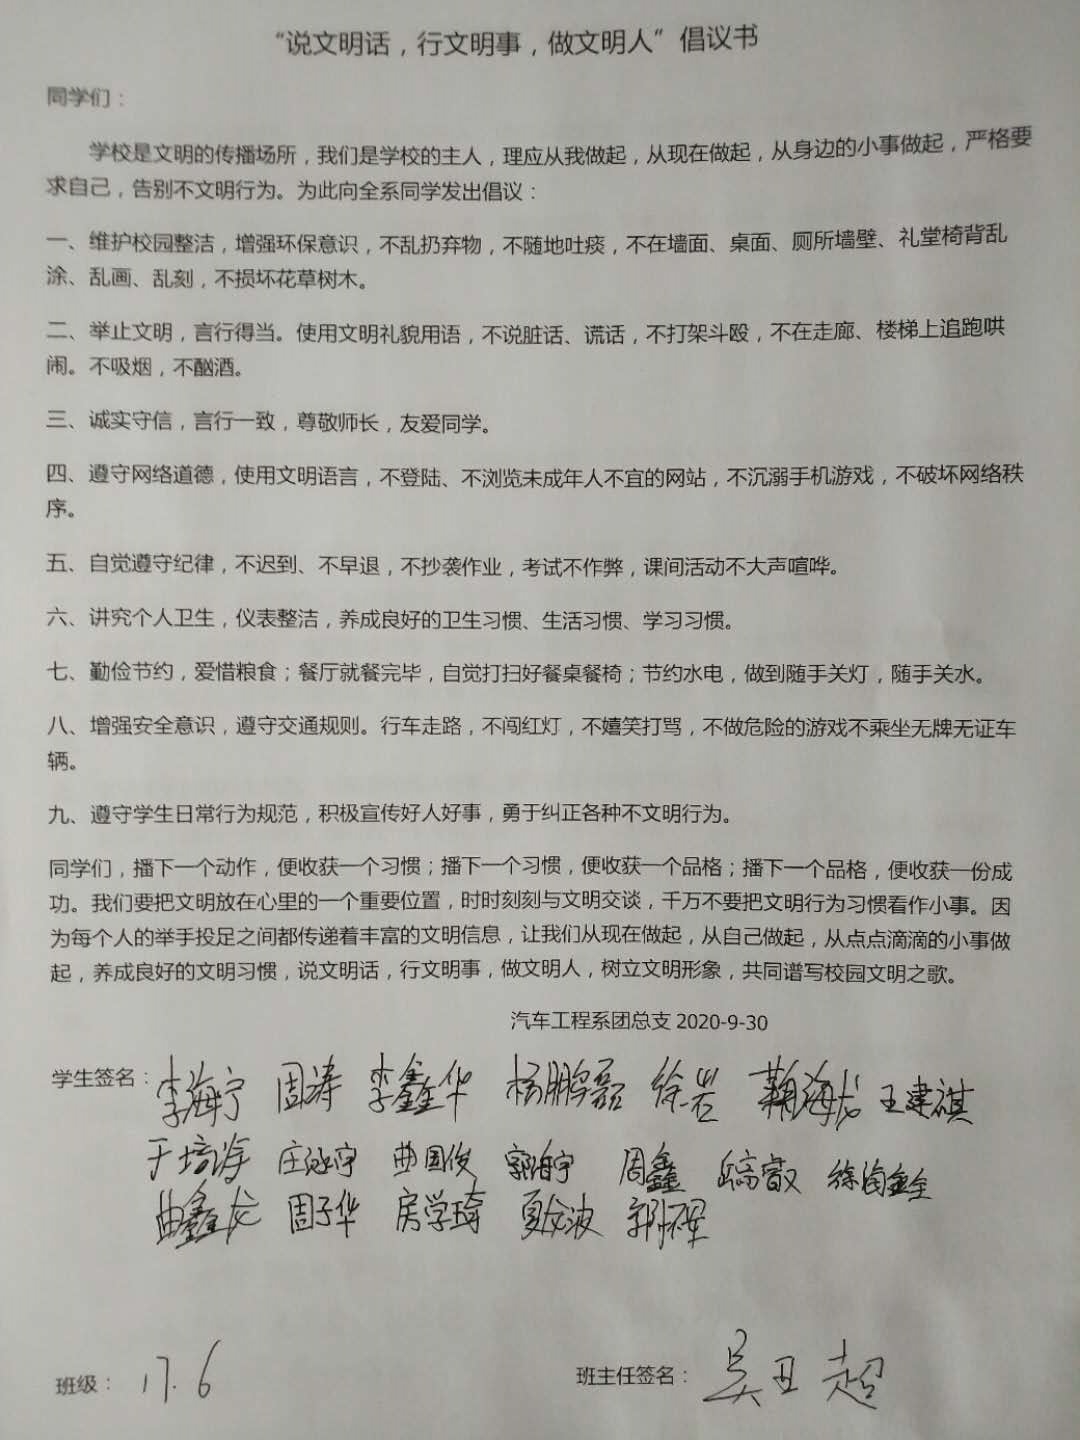 “说文明话，行文明事，做文明人”倡议书
同学们：
学校是文明的传播场所，我们是学校的主人，理应从我做起，从现在做起，从身边的小事做起，严格要
求自己，告别不文明行为。为此向全系同学发出倡议：
一、维护校园整洁，增强环保意识，不乱扔弃物，不随地吐痰，不在墙面、桌面、厕所墙壁、礼堂椅背乱
涂、乱画、乱刻，不损坏花草树木。
二、举止文明，言行得当。使用文明礼貌用语，不说脏话、谎话，不打架斗殴，不在走廊、楼梯上追跑哄
闹。不吸烟，不酗酒。
三、诚实守信，言行一致，尊敬师长，友爱同学。
四、遵守网络道德，使用文明语言，不登陆、不浏览未成年人不宜的网站，不沉溺手机游戏，不破坏网络秩
序。
五、自觉遵守纪律，不迟到、不早退，不抄袭作业，考试不作弊，课间活动不大声喧哗。
六、讲究个人卫生，仪表整洁，养成良好的卫生习惯、生活习惯、学习习惯。
七、勤俭节约，爱惜粮食；餐厅就餐完毕，自觉打扫好餐桌餐椅；节约水电，做到随手关灯，随手关水。
八、增强安全意识，遵守交通规则。行车走路，不闯红灯，不嬉笑打骂，不做危险的游戏不乘坐无牌无证车
辆。
九、遵守学生日常行为规范，积极宣传好人好事，勇于纠正各种不文明行为。
同学们，播下一个动作，便收获一个习惯；播下一个习惯，便收获一个品格；播下一个品格，便收获一份成
功。我们要把文明放在心里的一个重要位置，时时刻刻与文明交谈，千万不要把文明行为习惯看作小事。因
为每个人的举手投足之间都传递着丰富的文明信息，让我们从现在做起，从自己做起，从点点滴滴的小事做
起，养成良好的文明习惯，说文明话，行文明事，做文明人，树立文明形象，共同谱写校园文明之歌。
汽车工程系团总支 2020-9-30
学生签名：李海宁 周涛 李鑫华 杨鹏磊 徐岩 鞠海龙 王建祺
于培 庄泳宇 曲国俊 郭海宇 周鑫 徐海鑫
曲鑫龙 周子华 房学琦 夏 波 郭
班级：17.6 班主任签名：吴丑超